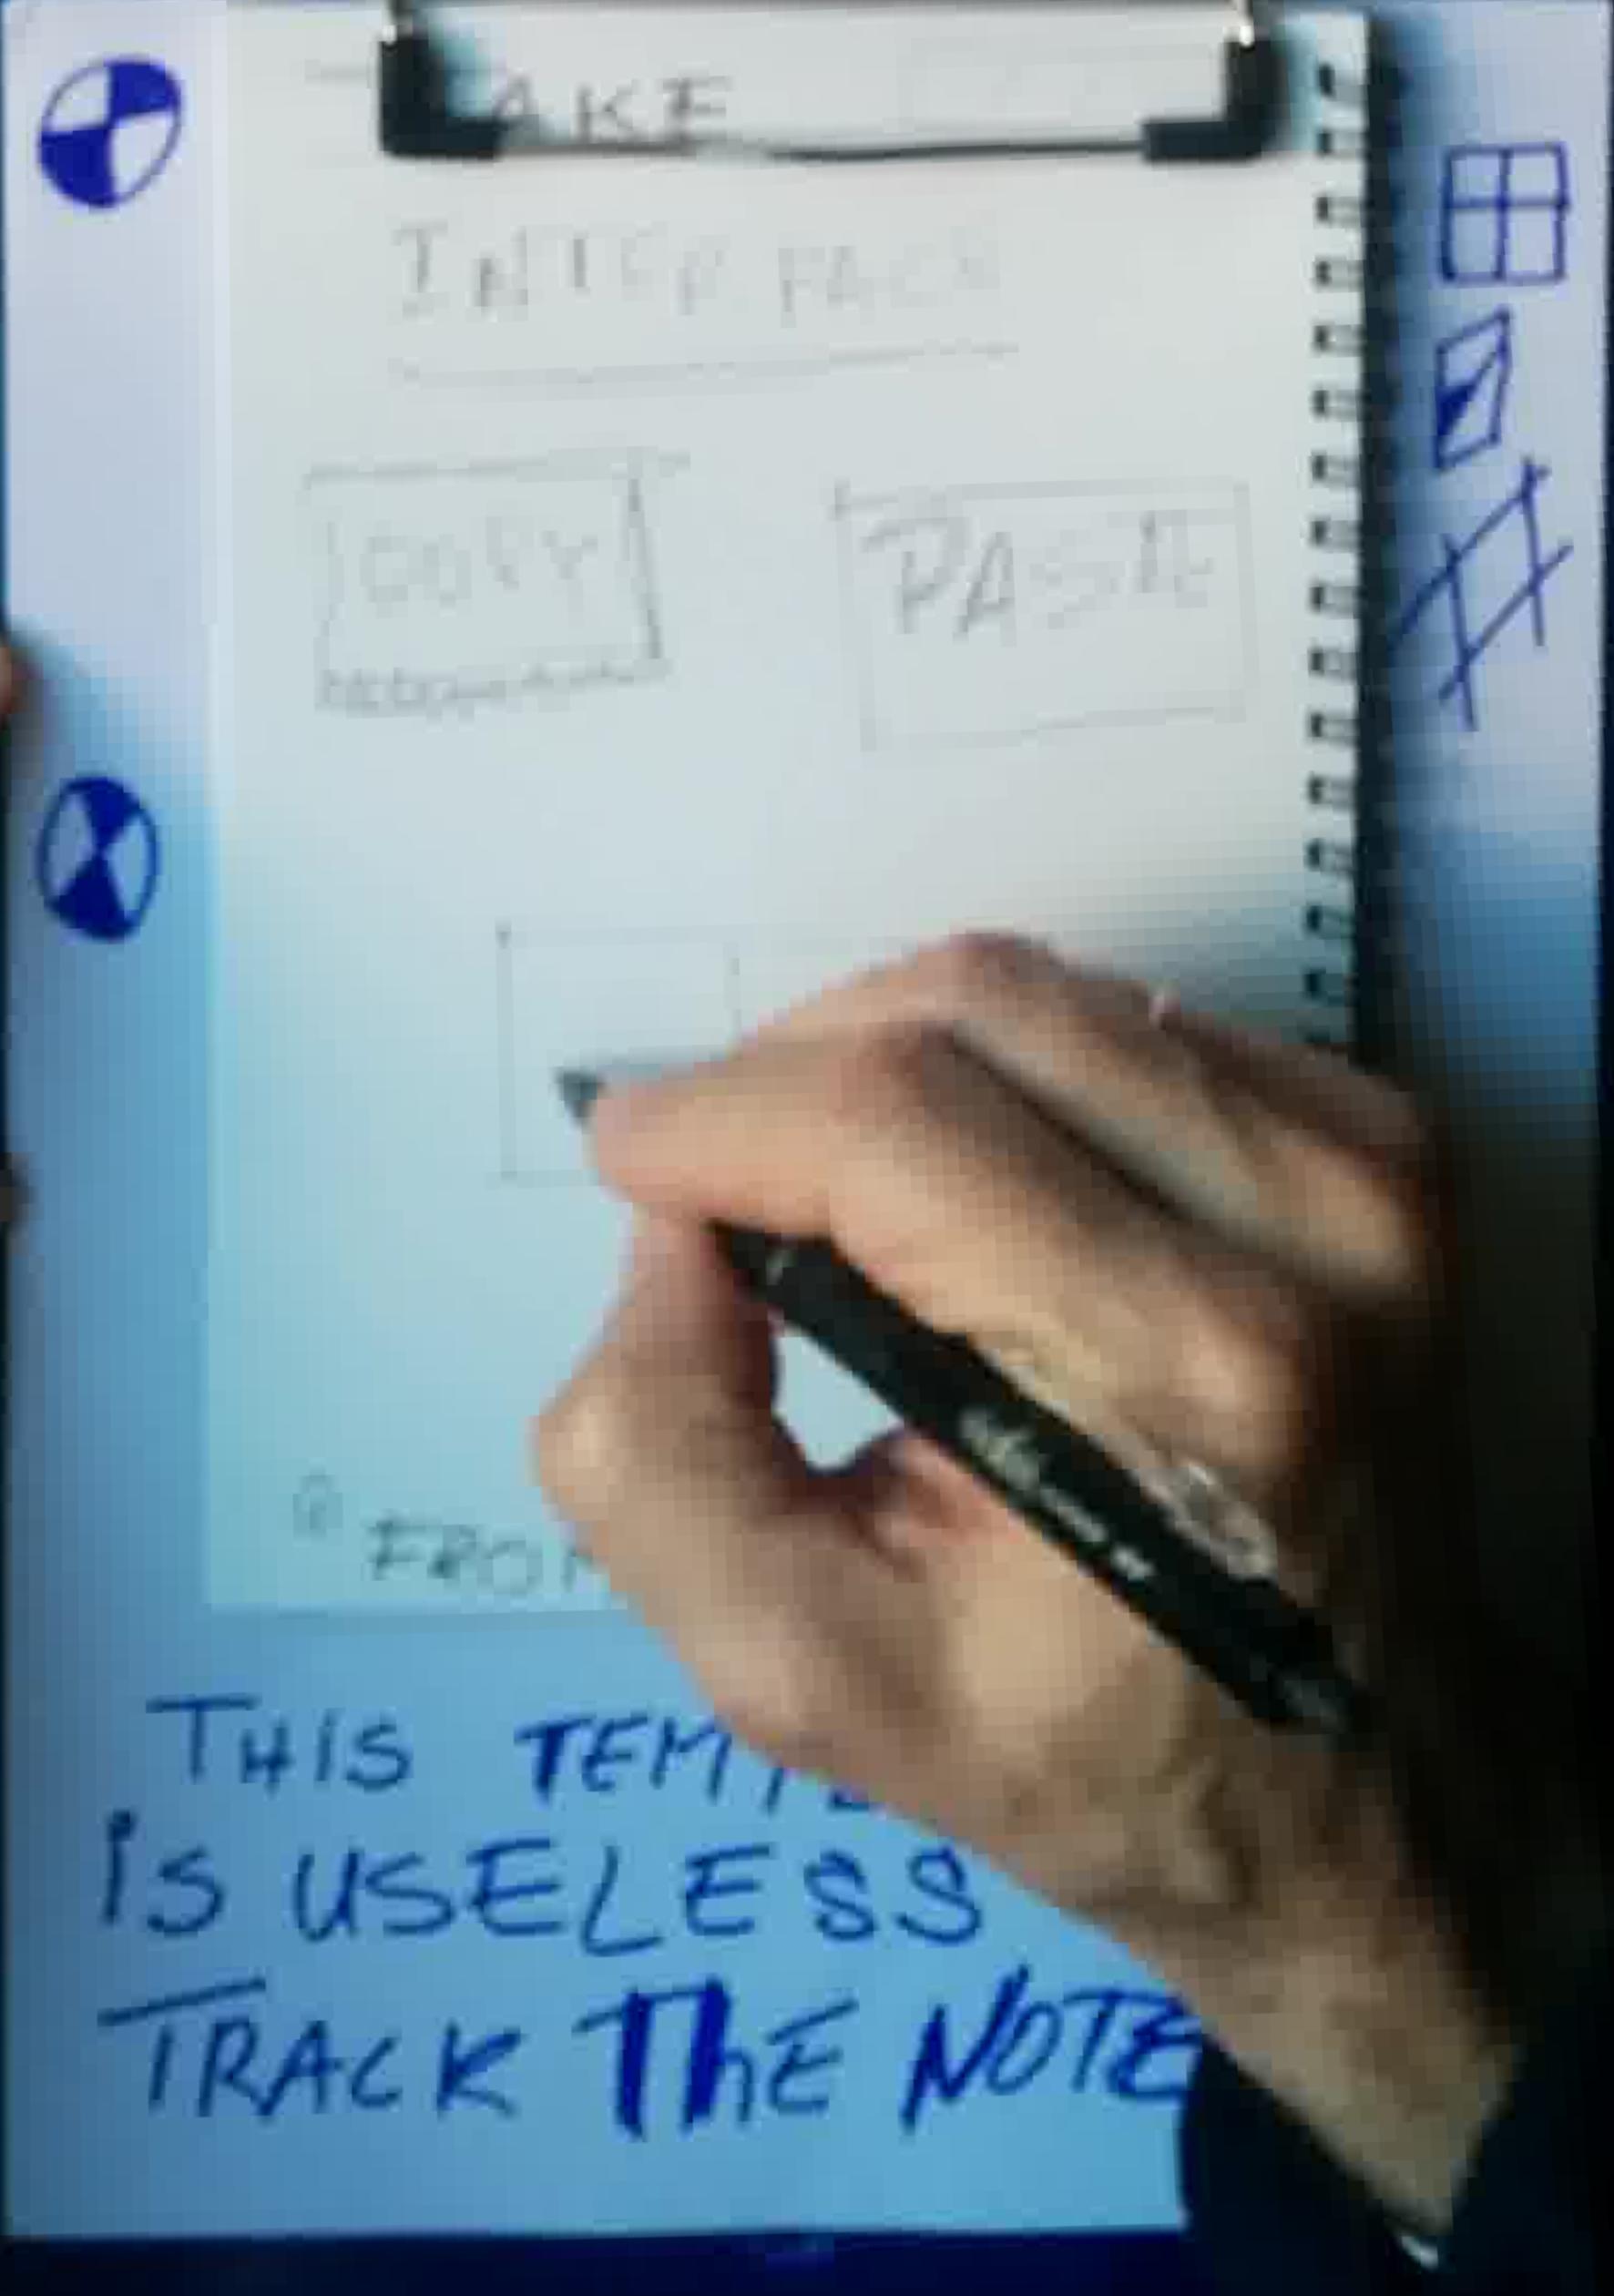 AKE
INTERFACE
COPY PASTE
FRO
THIS TEMPL
iS USELESS
TRACK ThE NOTE